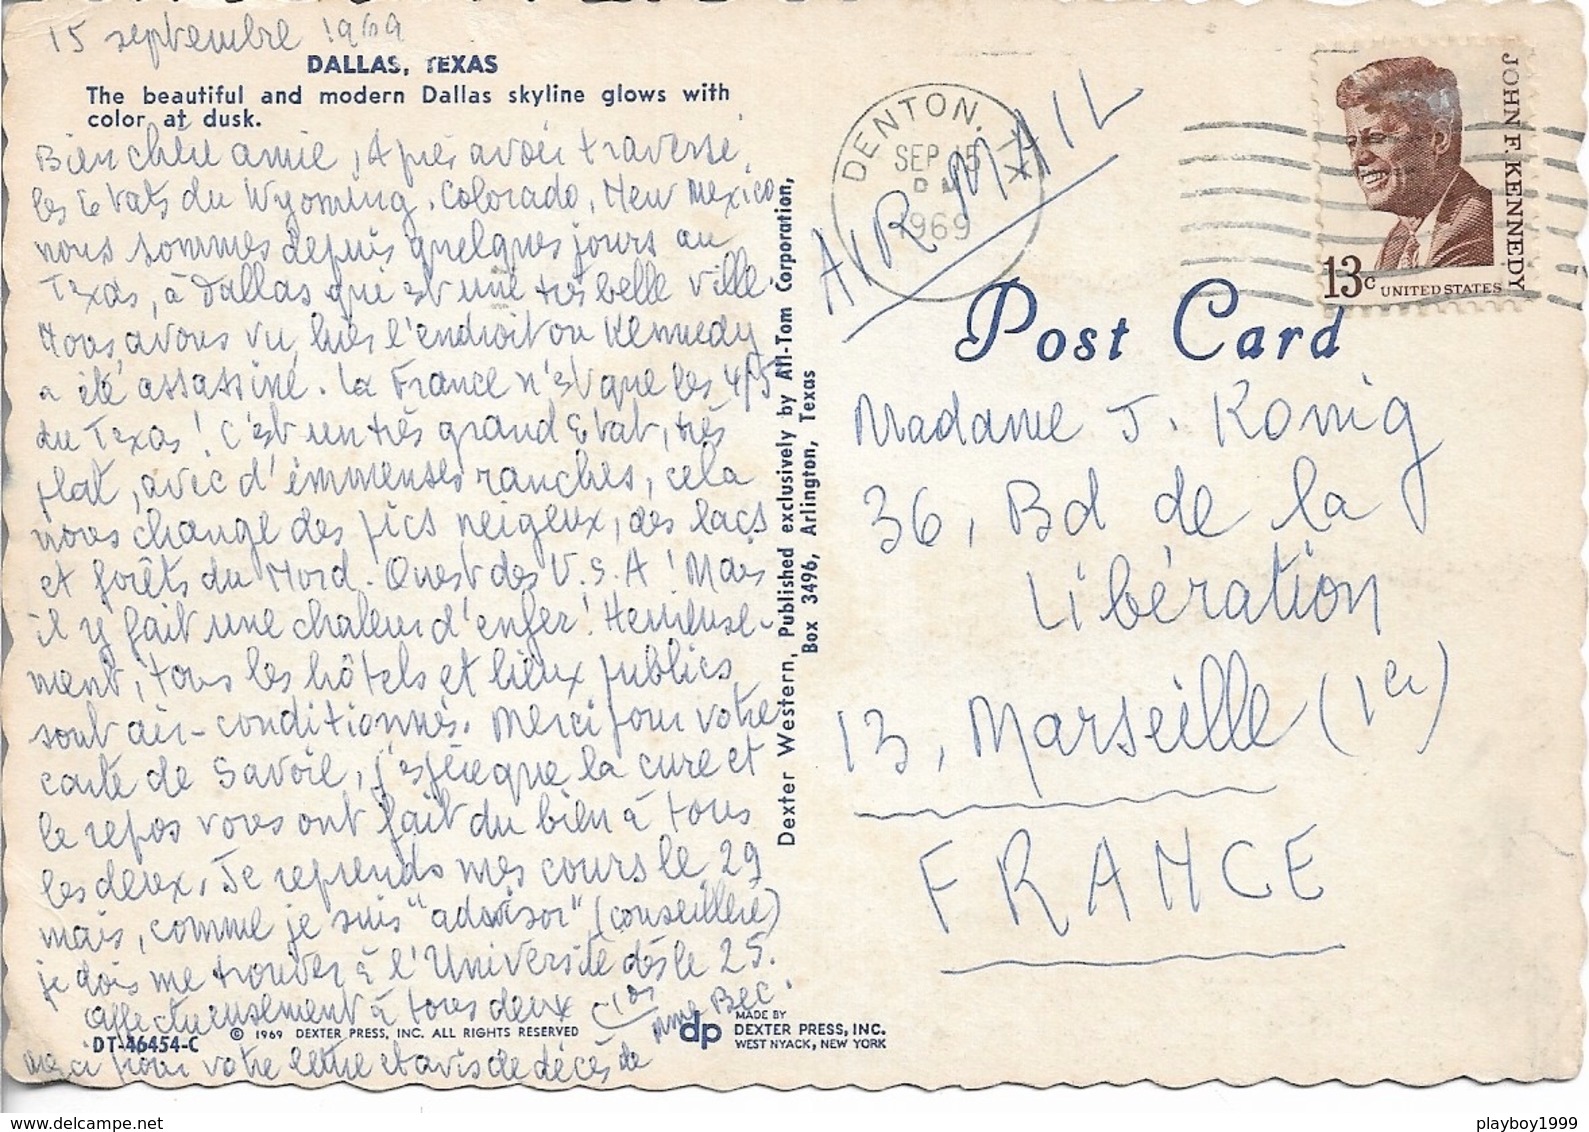 15 septembre 1969
DALLAS, TEXAS
The beautiful and modern Dallas skyline glows with
color at dusk.
Bien chère amie, Après avoir traversé
les Etats du Wyoming. Colorado, New Mexico
nous sommes depuis quelques jours au
Texas, à Dallas qui est une très belle ville.
Nous avons vu, hier l'endroit où Kennedy
a été assassiné. La France n'est que les 4/5
du Texas! C'est un très grand Etat, très
plat, avec d'immenses ranches, cela
nous change des pics neigeux, des lacs
et forêts du Nord-Ouest des U.S.A! Mais
il y fait une chaleur d'enfer! Heureuse-
ment, tous les hôtels et lieux publics
sont air-conditionnés. Merci pour votre
carte de Savoie, j'espère que la cure et
le repos vous ont fait du bien à tous
les deux. Je reprends mes cours le 29
mais, comme je suis "advisor" (conseillère)
je dois me trouver à l'Université dès le 25.
Affectueusement à tous deux
merci pour votre lettre et avis de décès de
Mme Bec.
DT-46454-C
© 1969 DEXTER PRESS, INC. ALL RIGHTS RESERVED
dp
MADE BY
DEXTER PRESS, INC.
WEST NYACK, NEW YORK
Dexter Western, Published exclusively by All-Tom Corporation,
Box 3496, Arlington, Texas
DENTON, TX
SEP 15
1969
AIR MAIL
JOHN F. KENNEDY
13c UNITED STATES
Post Card
Madame J. Konig
36, Bd de la
Libération
13, Marseille (1er)
FRANCE
playboy1999